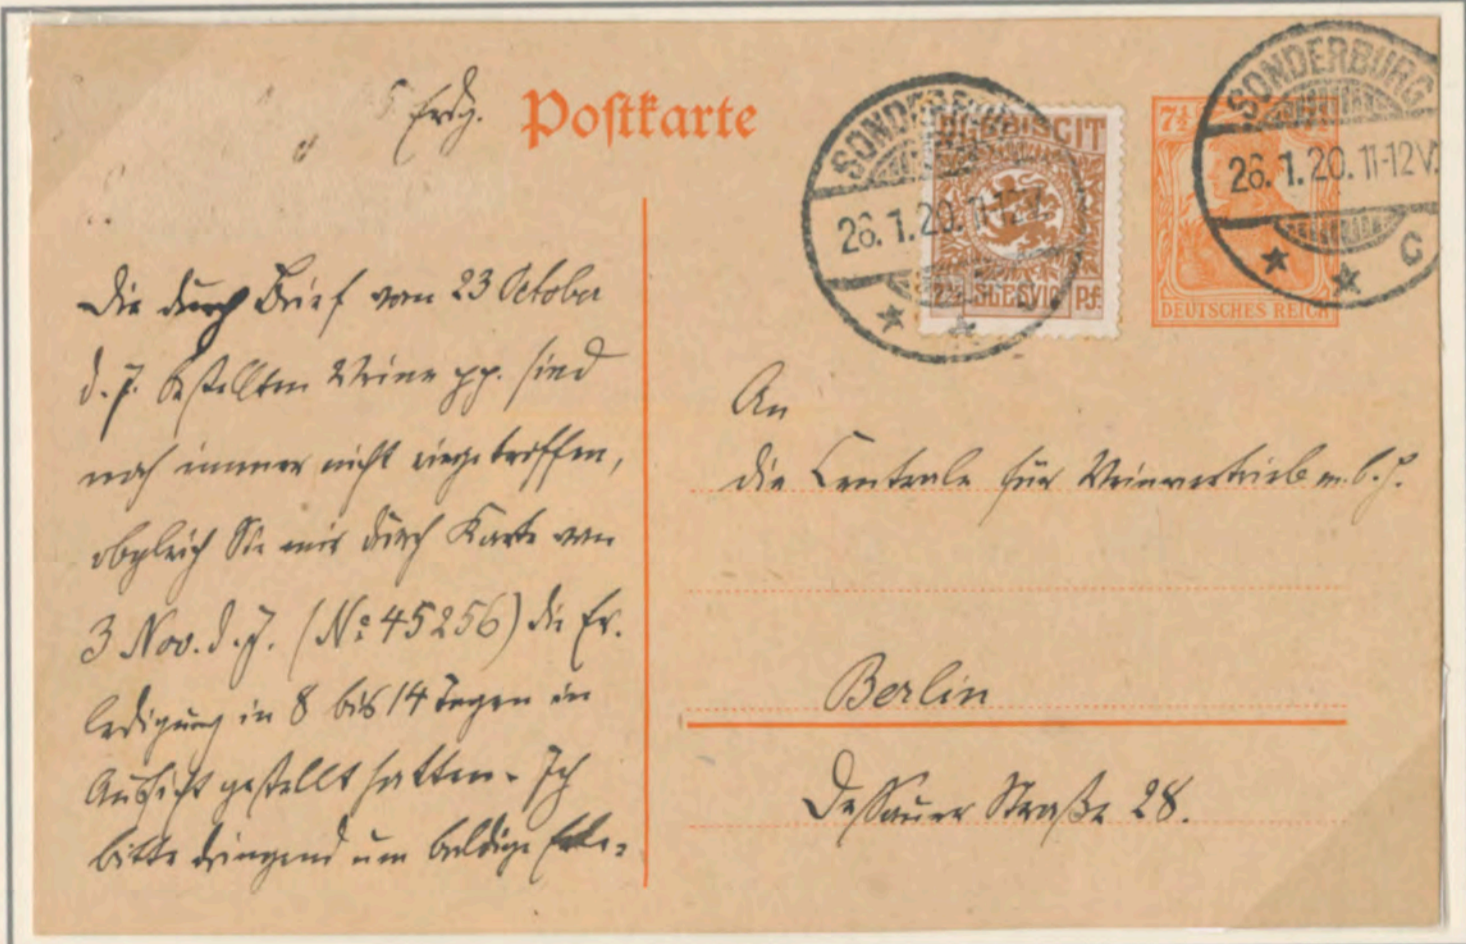 Postkarte
SONDERBURG
26.1.20.11-12V.
C
PLEBISCIT
2½ SLESVIG Pf.
7½
DEUTSCHES REICH
Die durch Brief vom 23 October
d. J. bestellten Weine pp. sind
noch immer nicht eingetroffen,
obgleich Sie mir durch Karte vom
3 Nov. d. J. (No 45256) die Er-
ledigung in 8 bis 14 Tagen in
Aussicht gestellt hatten. Ich
bitte dringend um baldige Erle-
An
die Centrale für Weinvertrieb m. b. H.
Berlin
Dessauer Straße 28.